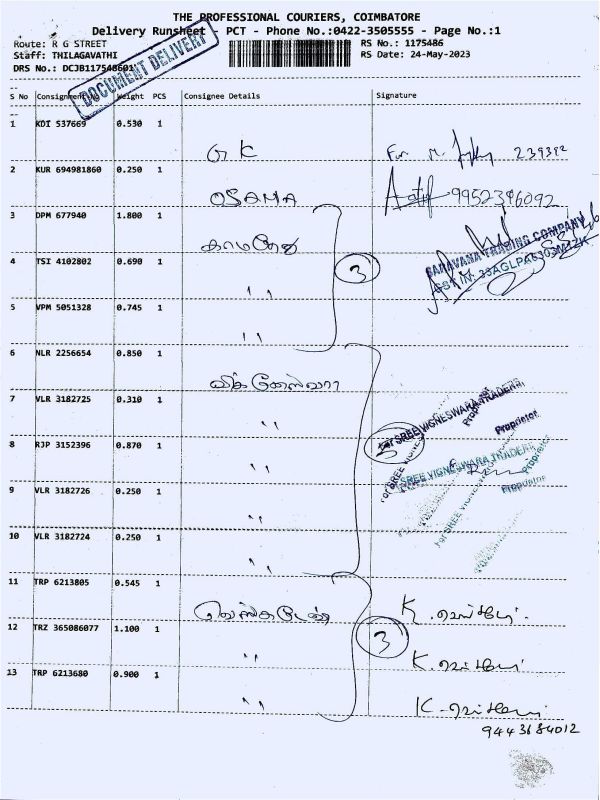 THE PROFESSIONAL COURIERS, COIMBATORE
Delivery Runsheet - PCT - Phone No.:0422-3505555 - Page No.:1
Route: R G STREET RS No.: 1175486
Staff: THILAGAVATHI RS Date: 24-May-2023
DRS No.: DCJB117548601
DOCUMENT DELIVERY
S No Consignment No Weight PCS Consignee Details Signature
1 KDI 537669 0.530 1
G K For 239392
2 KUR 694981860 0.250 1
OSAMA 9952396092
3 DPM 677940 1.800 1
SARAVANA TRADING COMPANY
4 TSI 4102802 0.690 1
" 3
5 VPM 5051328 0.745 1
"
6 NLR 2256654 0.850 1
7 VLR 3182725 0.310 1
" For SREE VIGNESWARA TRADERS
Proprietor
8 RJP 3152396 0.870 1
" 5 SREE VIGNESWARA TRADERS
Proprietor
9 VLR 3182726 0.250 1
"
10 VLR 3182724 0.250 1
"
11 TRP 6213805 0.545 1
K.
12 TRZ 365086077 1.100 1
" 3 K.
13 TRP 6213680 0.900 1
" K.
9443684012